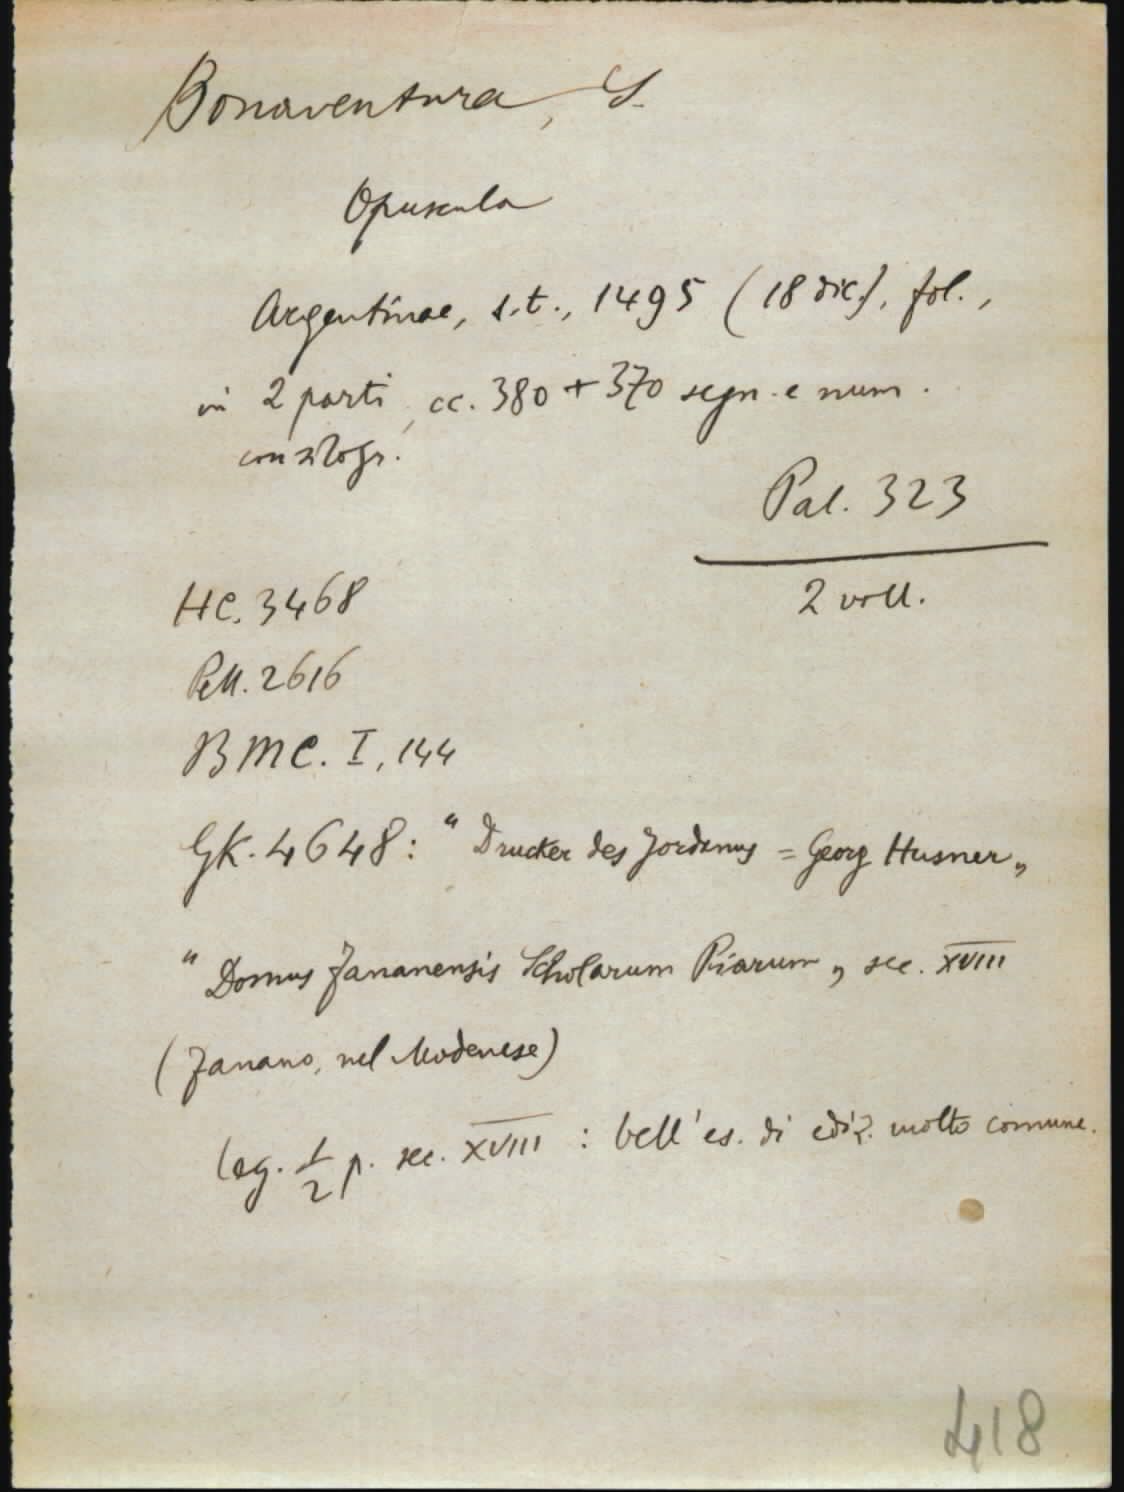 Bonaventura, S.
Opuscula
Argentinae, s.t., 1495 (18 dic.), fol.,
in 2 parti, cc. 380 + 370 segn. e num.
con silogr.
Pal. 323
2 voll.
HC. 3468
Pell. 2616
BMC. I, 144
GK. 4648: "Drucker des Jordanus = Georg Husner„
"Domus Fananensis Scholarum Piarum„ sec. XVIII
(Fanano, nel Modenese)
leg. 1/2 p. sec. XVIII : bell'es. di ediz. molto comune.
418